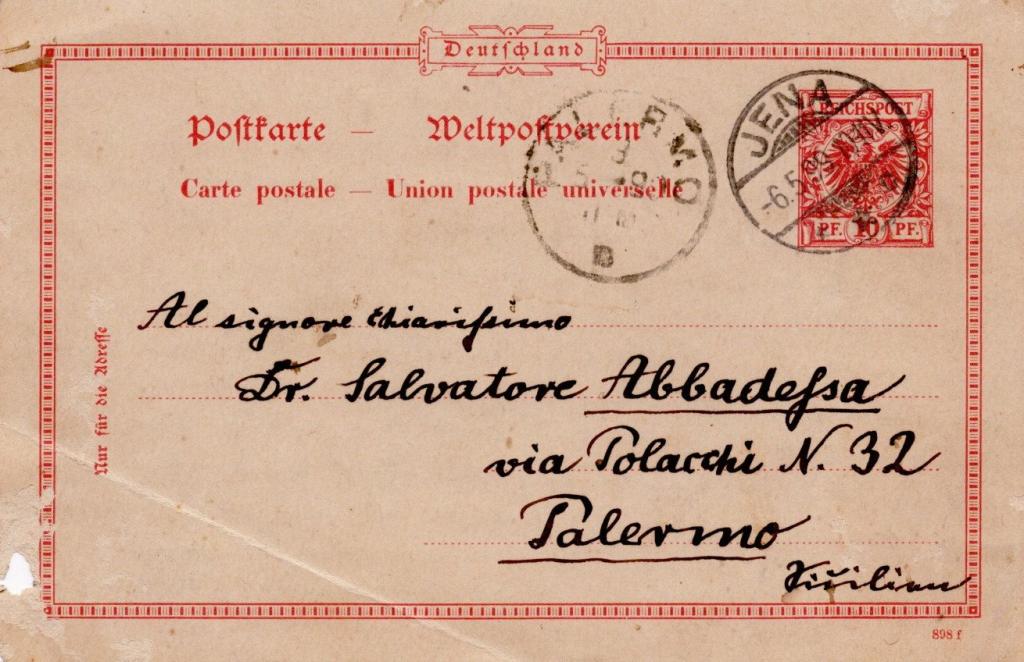 Deutschland
Postkarte — Weltpostverein
Carte postale — Union postale universelle
PALERMO
B
JENA
-6.5.99
REICHSPOST
PF. 10 PF.
Nur für die Adresse
Al signore chiarissimo
Dr. Salvatore Abbadessa
via Polacchi N. 32
Palermo
Sicilien
898 f